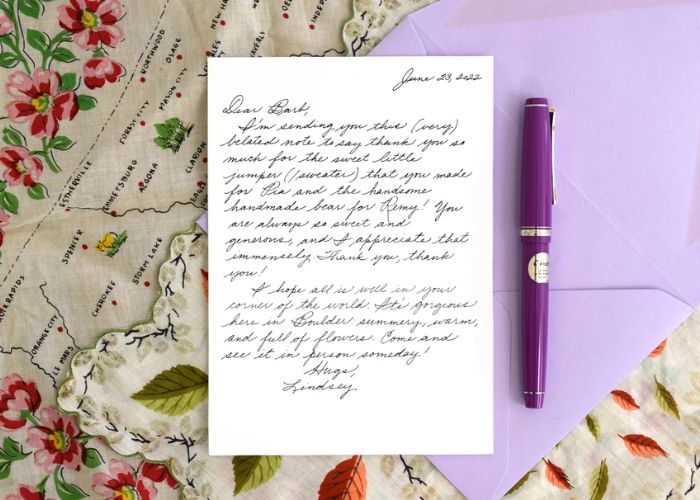 June 23, 2022
Dear Barb,
I'm sending you this (very)
belated note to say thank you so
much for the sweet little
jumper (/sweater) that you made
for Pia and the handsome
handmade bear for Remy! You
are always so sweet and
generous, and I appreciate that
immensely. Thank you, thank
you!
I hope all is well in your
corner of the world. It's gorgeous
here in Boulder summery, warm,
and full of flowers. Come and
see it in person someday!
Hugs,
Lindsey
NORTHWOOD
OSAGE
MASON CITY
FOREST CITY
CLARION
ALGONA
EMMETSBURG
ESTHERVILLE
SPENCER
STORM LAKE
CHEROKEE
ORANGE CITY
LE MARS